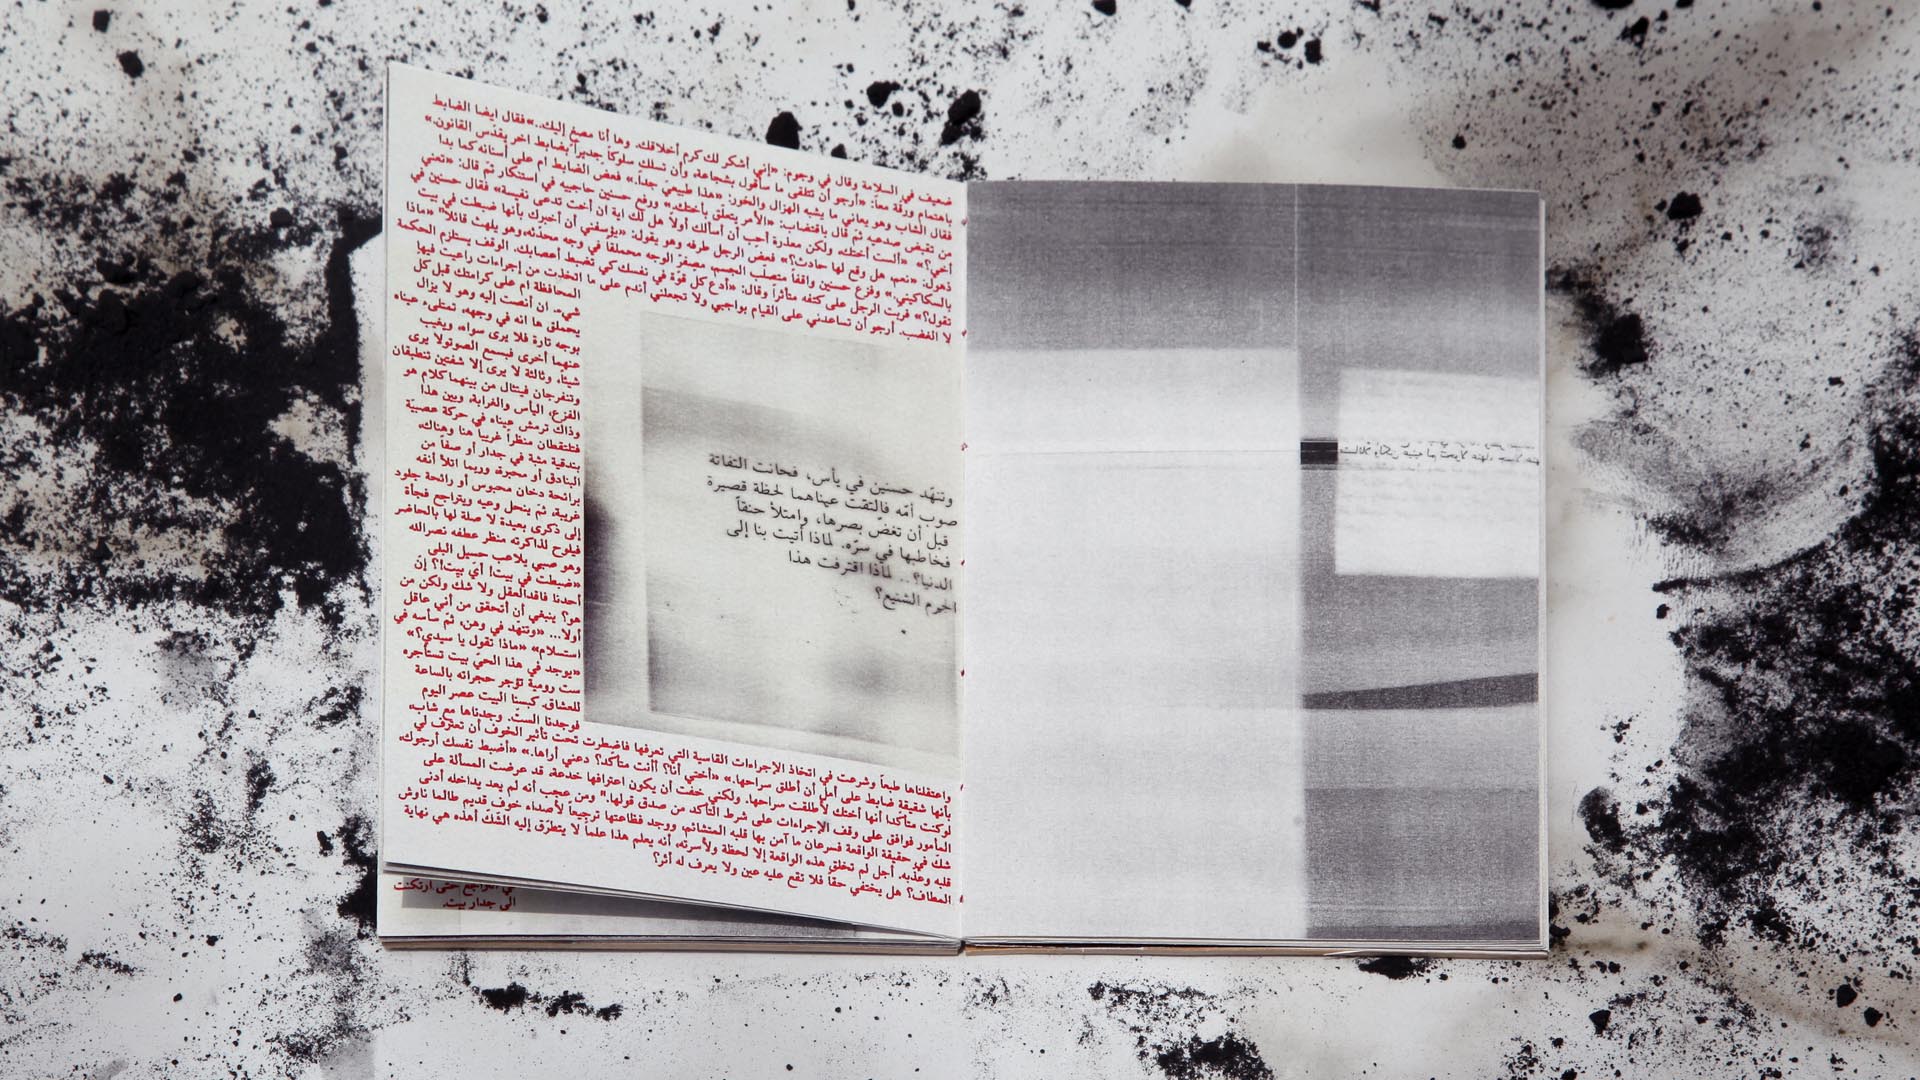 ضعيف في السلامة وقال في وجوم: «إني أشكر لك كرم أخلاقك. وها أنا مصغ إليك..»فقال ايضا الضابط
باهتمام ورقة معاً: «أرجو أن تتلقى ما سأقول بشجاعة، وأن تسلك سلوكاً جديراً بضابط اخر يقدّس القانون.»
فقال الشاب وهو يعاني ما يشبه الهزال والخور: «هذا طبيعي جداً.» فعض الضابط ام على أسنانه كما بدا
من تقبض صدغيه ثمّ قال باقتضاب: «الأمر يتعلّق بأختك.» ورفع حسنين حاجبيه في استنكار ثمّ قال: «تعني
أختي؟» «ألست أختك، ولكن معذرة أحبّ أن أسألك أولاً هل لك اية ان أخت تدعى نفيسة» فقال حسنين في
ذهول: «نعم، هل وقع لها حادث؟» فغض الرجل طرفه وهو يقول: «يؤسفني أن أخبرك بأنها ضبطت في بيت
بالسكاكيني.» وفزع حسنين واقفاً متصلّب الجسم، مصفرّ الوجه محملقا في وجه محدّثه، وهو يلهث قائلاً" «ماذا
تقول؟» فربت الرجل على كتفه متأثراً وقال: «أدع كل قوّة في نفسك كي تضبط أعصابك. الوقف يستلزم الحكمة
لا الغضب. أرجو أن تساعدني على القيام بواجبي ولا تجعلني أندم على ما اتخذت من إجراءات راعيت فيها
المحافظة ام على كرامتك قبل كل
شيء. ان أنصت إليه وهو لا يزال
يحملق ها انه في وجهه، تمتلىء عيناه
بوجه تارة فلا يرى سواه، ويغيب
عنهما أخرى فيسمع الصوتولا يرى
شيئاً، وثالثة لا يرى إلا شفتين تنطبقان
وتنفرجان فينثال من بينهما كلام هو
الفزع، اليأس والغرابة، وبين هذا
وذاك ترمش عيناه في حركة عصبيّة
فتلتقطان منظراً غريبا هنا وهناك،
بندقية مثبة في جدار أو صفاً من
البنادق أو محبرة، وربما اتلأ أنفه
برائحة دخان محبوس أو رائحة جلود
غريبة، ثمّ ينحل وعيه ويتراجع فجأة
إلى ذكرى بعيدة لا صلة لها بالحاضر
فيلوح لذاكرته منظر عطفه نصرالله
وهو صبي يلاعب حسيل البلى
«ضبطت في بيت! أيّ بيت!؟ إنّ
أحدنا فاقدالعقل ولا شك ولكن من
هو؟ ينبغي أن أتحقق من أني عاقل
أولا... «وتنهّد في وهن، ثمّ سأسه في
إستسلام» «ماذا تقول يا سيدي؟»
«يوجد في هذا الحيّ بيت تستأجره
ست رومية تؤجر حجراته بالساعة
للعشاق. كبسنا البيت عصر اليوم
فوجدنا الستّ. وجدناها مع شاب،
واعتقلناها طبعاً وشرعت في اتخاذ الإجراءات القاسية التي تعرفها فاضطرت تحت تأثير الخوف أن تعترف لي
بأنها شقيقة ضابط على أمل أن أطلق سراحها.» «أختي أنا؟ أأنت متأكد؟ دعني أراها.» «أضبط نفسك أرجوك،
لوكنت متأكدا أنها أختك لأطلقت سراحها. ولكني خفت أن يكون اعترافها خدعة، قد عرضت المسألة على
المأمور فوافق على وقف الإجراءات على شرط التأكد من صدق قولها." ومن عجب أنه لم يعد يداخله أدنى
شكّ في حقيقة الواقعة فسرعان ما آمن بها قلبه المتشائم، ووجد فظاعتها ترجيعاً لأصداء خوف قديم طالما ناوش
قلبه وعذّبه. أجل لم تخلق هذه الواقعة إلا لحظة ولأسرته، أنه يعلم هذا علماً لا يتطرّق إليه الشكّ أهذه هي نهاية
المطاف؟ هل يختفي حقاً فلا تقع عليه عين ولا يعرف له أثر؟
وتنهّد حسنين في يأس، فحانت التفاتة
صوب أمّه فالتقت عيناهما لحظة قصيرة
قبل أن تغضّ بصرها، وامتلأ حنقاً
فخاطبها في سرّه. لماذا أتيت بنا إلى
الدنيا؟.. لماذا اقترفت هذا
الجرم الشنيع؟
في التراجع حتى ارتكنت
الى جدار بيت.